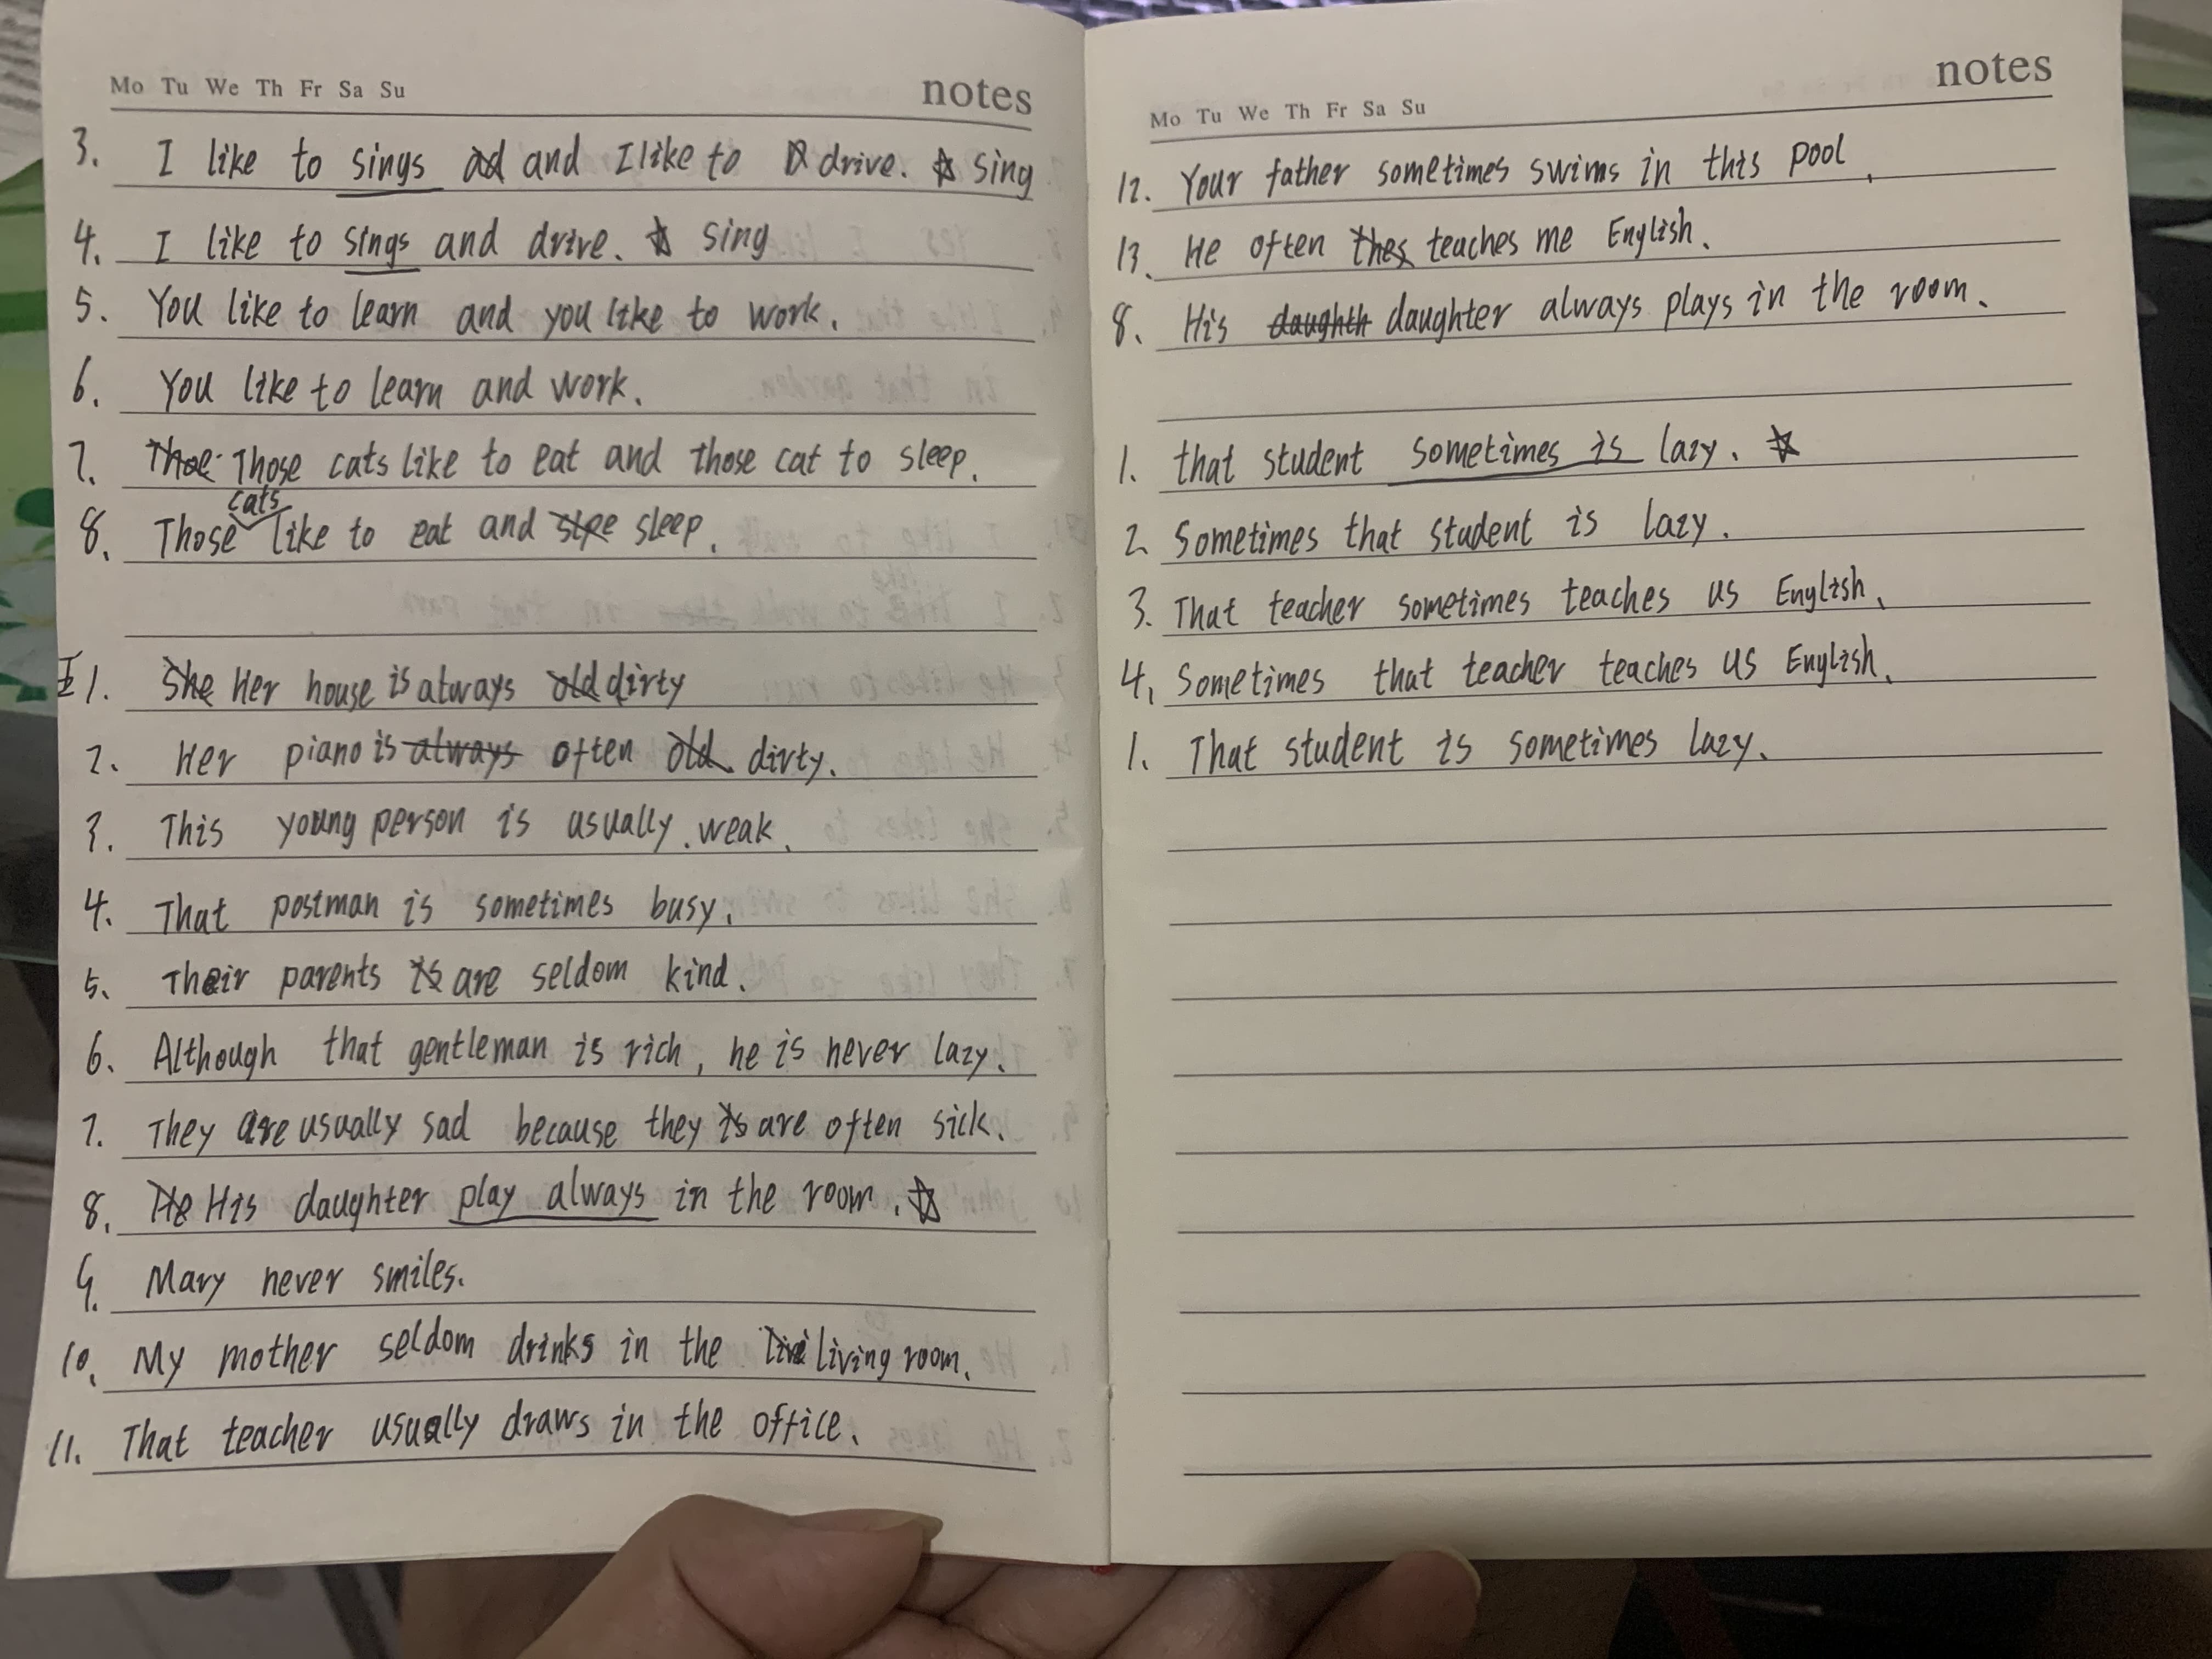 Mo Tu We Th Fr Sa Su notes
3. I like to sings ad and I like to drive. ☆ sing
4. I like to sings and drive. ☆ sing
5. You like to learn and you like to work.
6. You like to learn and work.
7. Thoe Those cats like to eat and those cat to sleep.
cats
8. Those like to eat and slpe sleep.
II 1. She Her house is always old dirty
2. Her piano is always often old dirty.
3. This young person is usually. weak.
4. That postman is sometimes busy.
5. Their parents is are seldom kind.
6. Although that gentleman is rich, he is never lazy.
7. They are usually sad because they is are often sick.
8. He His daughter play always in the room. ☆
9. Mary never smiles.
10. My mother seldom drinks in the livi living room.
11. That teacher usually draws in the office.
Mo Tu We Th Fr Sa Su notes
12. Your father sometimes swims in this pool.
13. He often thes teaches me English.
8. His daughth daughter always plays in the room.
1. that student sometimes is lazy. ☆
2. Sometimes that student is lazy.
3. That teacher sometimes teaches us English.
4. Sometimes that teacher teaches us English.
1. That student is sometimes lazy.